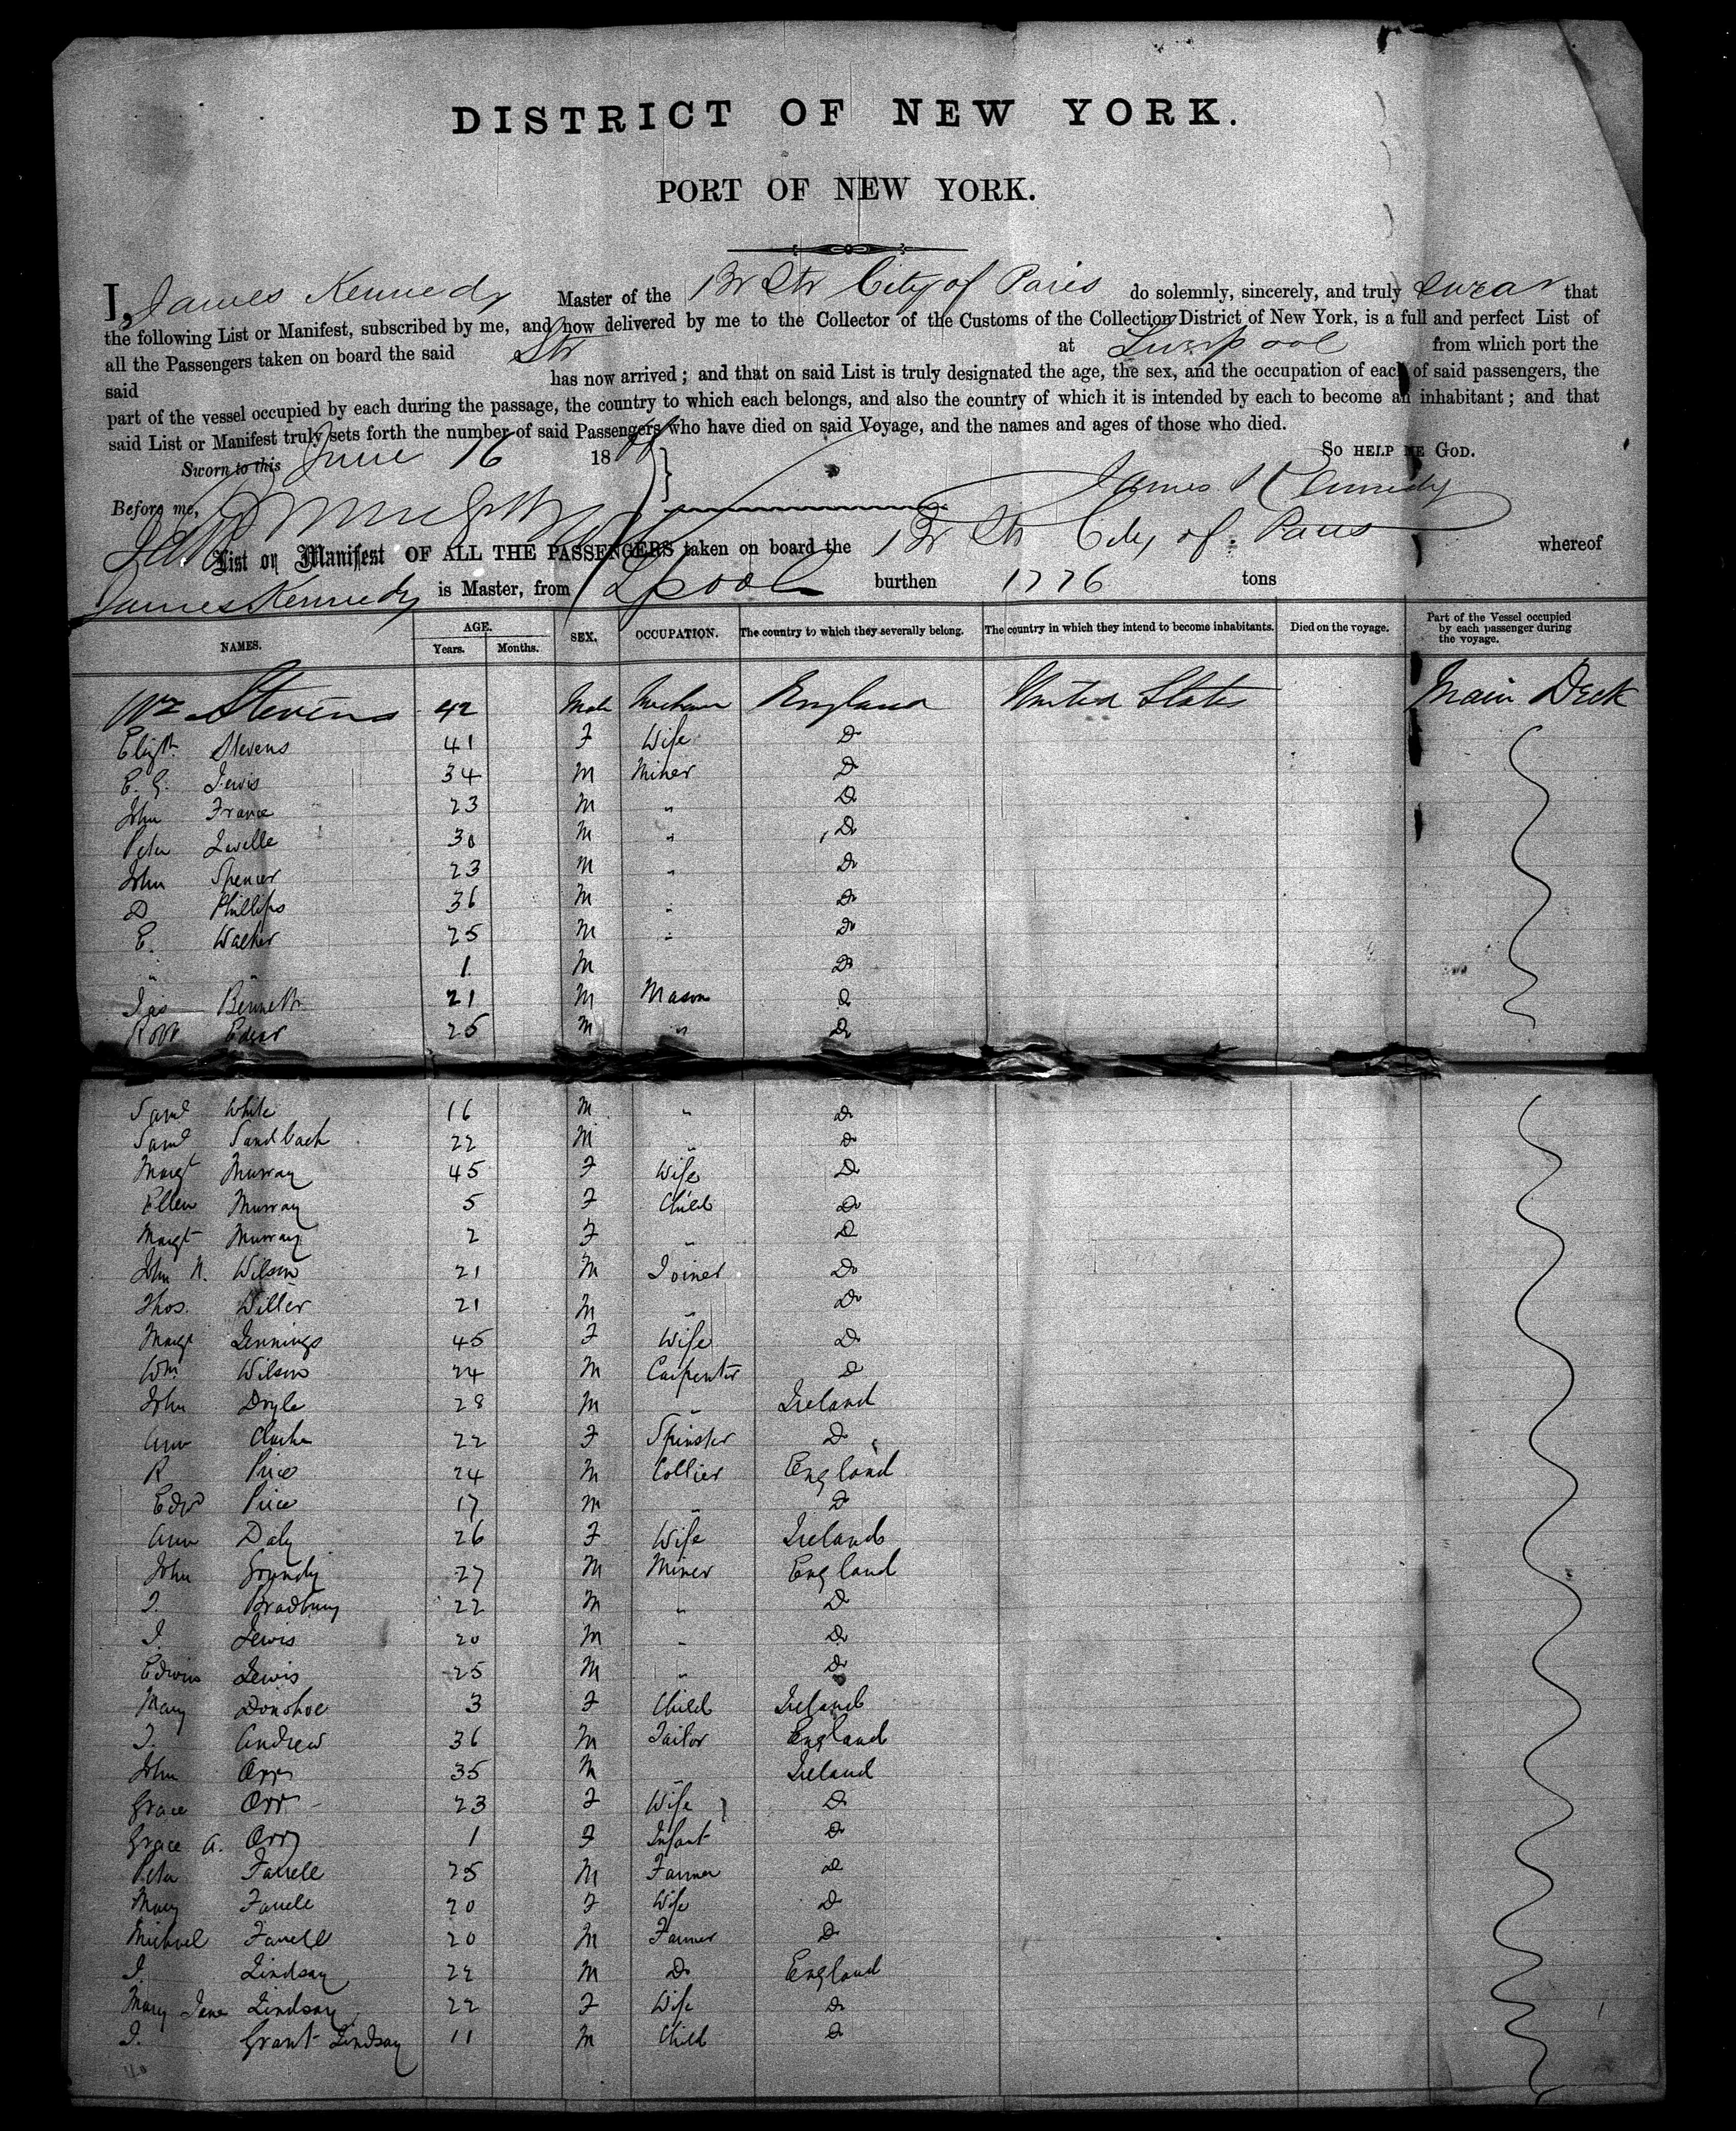 DISTRICT OF NEW YORK.
PORT OF NEW YORK.
I, James Kennedy Master of the Br Str City of Paris do solemnly, sincerely, and truly swear that
the following List or Manifest, subscribed by me, and now delivered by me to the Collector of the Customs of the Collection District of New York, is a full and perfect List of
all the Passengers taken on board the said Str at Liverpool from which port the
said has now arrived; and that on said List is truly designated the age, the sex, and the occupation of each of said passengers, the
part of the vessel occupied by each during the passage, the country to which each belongs, and also the country of which it is intended by each to become an inhabitant; and that
said List or Manifest truly sets forth the number of said Passengers who have died on said Voyage, and the names and ages of those who died.
Sworn to this June 16 18 So help me God.
Before me, James Kennedy
List or Manifest OF ALL THE PASSENGERS taken on board the Br Str City of Paris whereof
James Kennedy is Master, from Lpool burthen 1776 tons
NAMES. AGE. Years. Months. SEX. OCCUPATION. The country to which they severally belong. The country in which they intend to become inhabitants. Died on the voyage. Part of the Vessel occupied by each passenger during the voyage.
Wm Stevens 42 Male England United States Main Deck
Elizth Stevens 41 F Wife Do
E. G. Lewis 34 M Miner Do
John France 23 M " Do
Peter Lavelle 30 M " Do
John Spencer 23 M " Do
D Phillips 36 M " Do
E. Walker 25 M " Do
" " 1 M Do
Jas Bennett 21 M Mason Do
Robt Edgar 25 M " Do
Saml White 16 M " Do
Saml Sandbach 22 M " Do
Margt Murray 45 F Wife Do
Ellen Murray 5 F Child Do
Margt Murray 2 F " Do
John N. Wilson 21 M Joiner Do
Thos. Willer 21 M " Do
Margt Jennings 45 F Wife Do
Wm Wilson 24 M Carpenter Do
John Doyle 28 M " Ireland
Ann Clarke 22 F Spinster Do
R Price 24 M Collier England
Edwd Price 17 M " Do
Ann Daly 26 F Wife Ireland
John Grundy 27 M Miner England
J. Bradbury 22 M " Do
J. Lewis 20 M " Do
Edwin Lewis 25 M " Do
Mary Donohoe 3 F Child Ireland
J. Andrew 36 M Tailor England
John Orr 35 M " Ireland
Grace Orr 23 F Wife Do
Grace A. Orr 1 F Infant Do
Peter Farrell 25 M Farmer Do
Mary Farrell 20 F Wife Do
Michael Farrell 20 M Farmer Do
J. Lindsay 22 M Do England
Mary Jane Lindsay 22 F Wife Do
J. Grant Lindsay 11 M Child Do
40